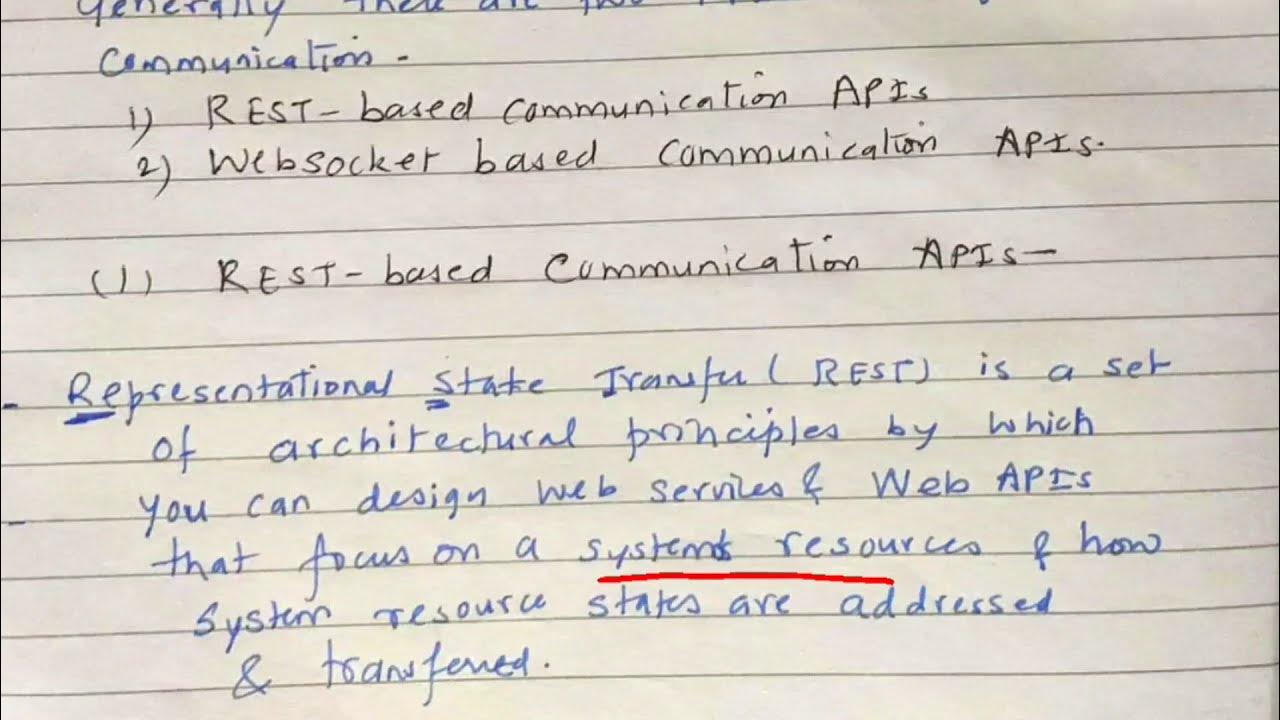 Generally there are two
Communication -
1) REST-based Communication APIs
2) Websocket based Communication APIs.
(1) REST-based Communication APIs—
- Representational State Transfer (REST) is a set
of architectural principles by which
- you can design web services & Web APIs
that focus on a systems resources & how
System resource states are addressed
& transferred.